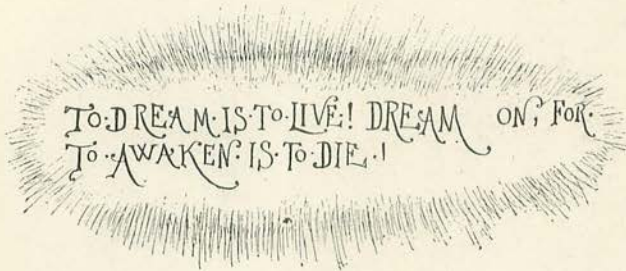 TO·DREAM·IS·TO·LIVE! DREAM ON, FOR·
TO·AWAKEN·IS·TO·DIE·!